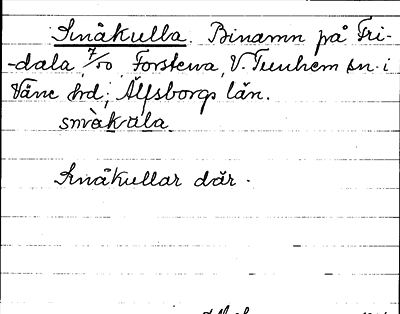 Småkulla. Binamn på Fri-
-dala 7/50 Forstena, V. Tunhem sn. i
Väne hd; Älfsborgs län.
småkùla
Småkullar där.